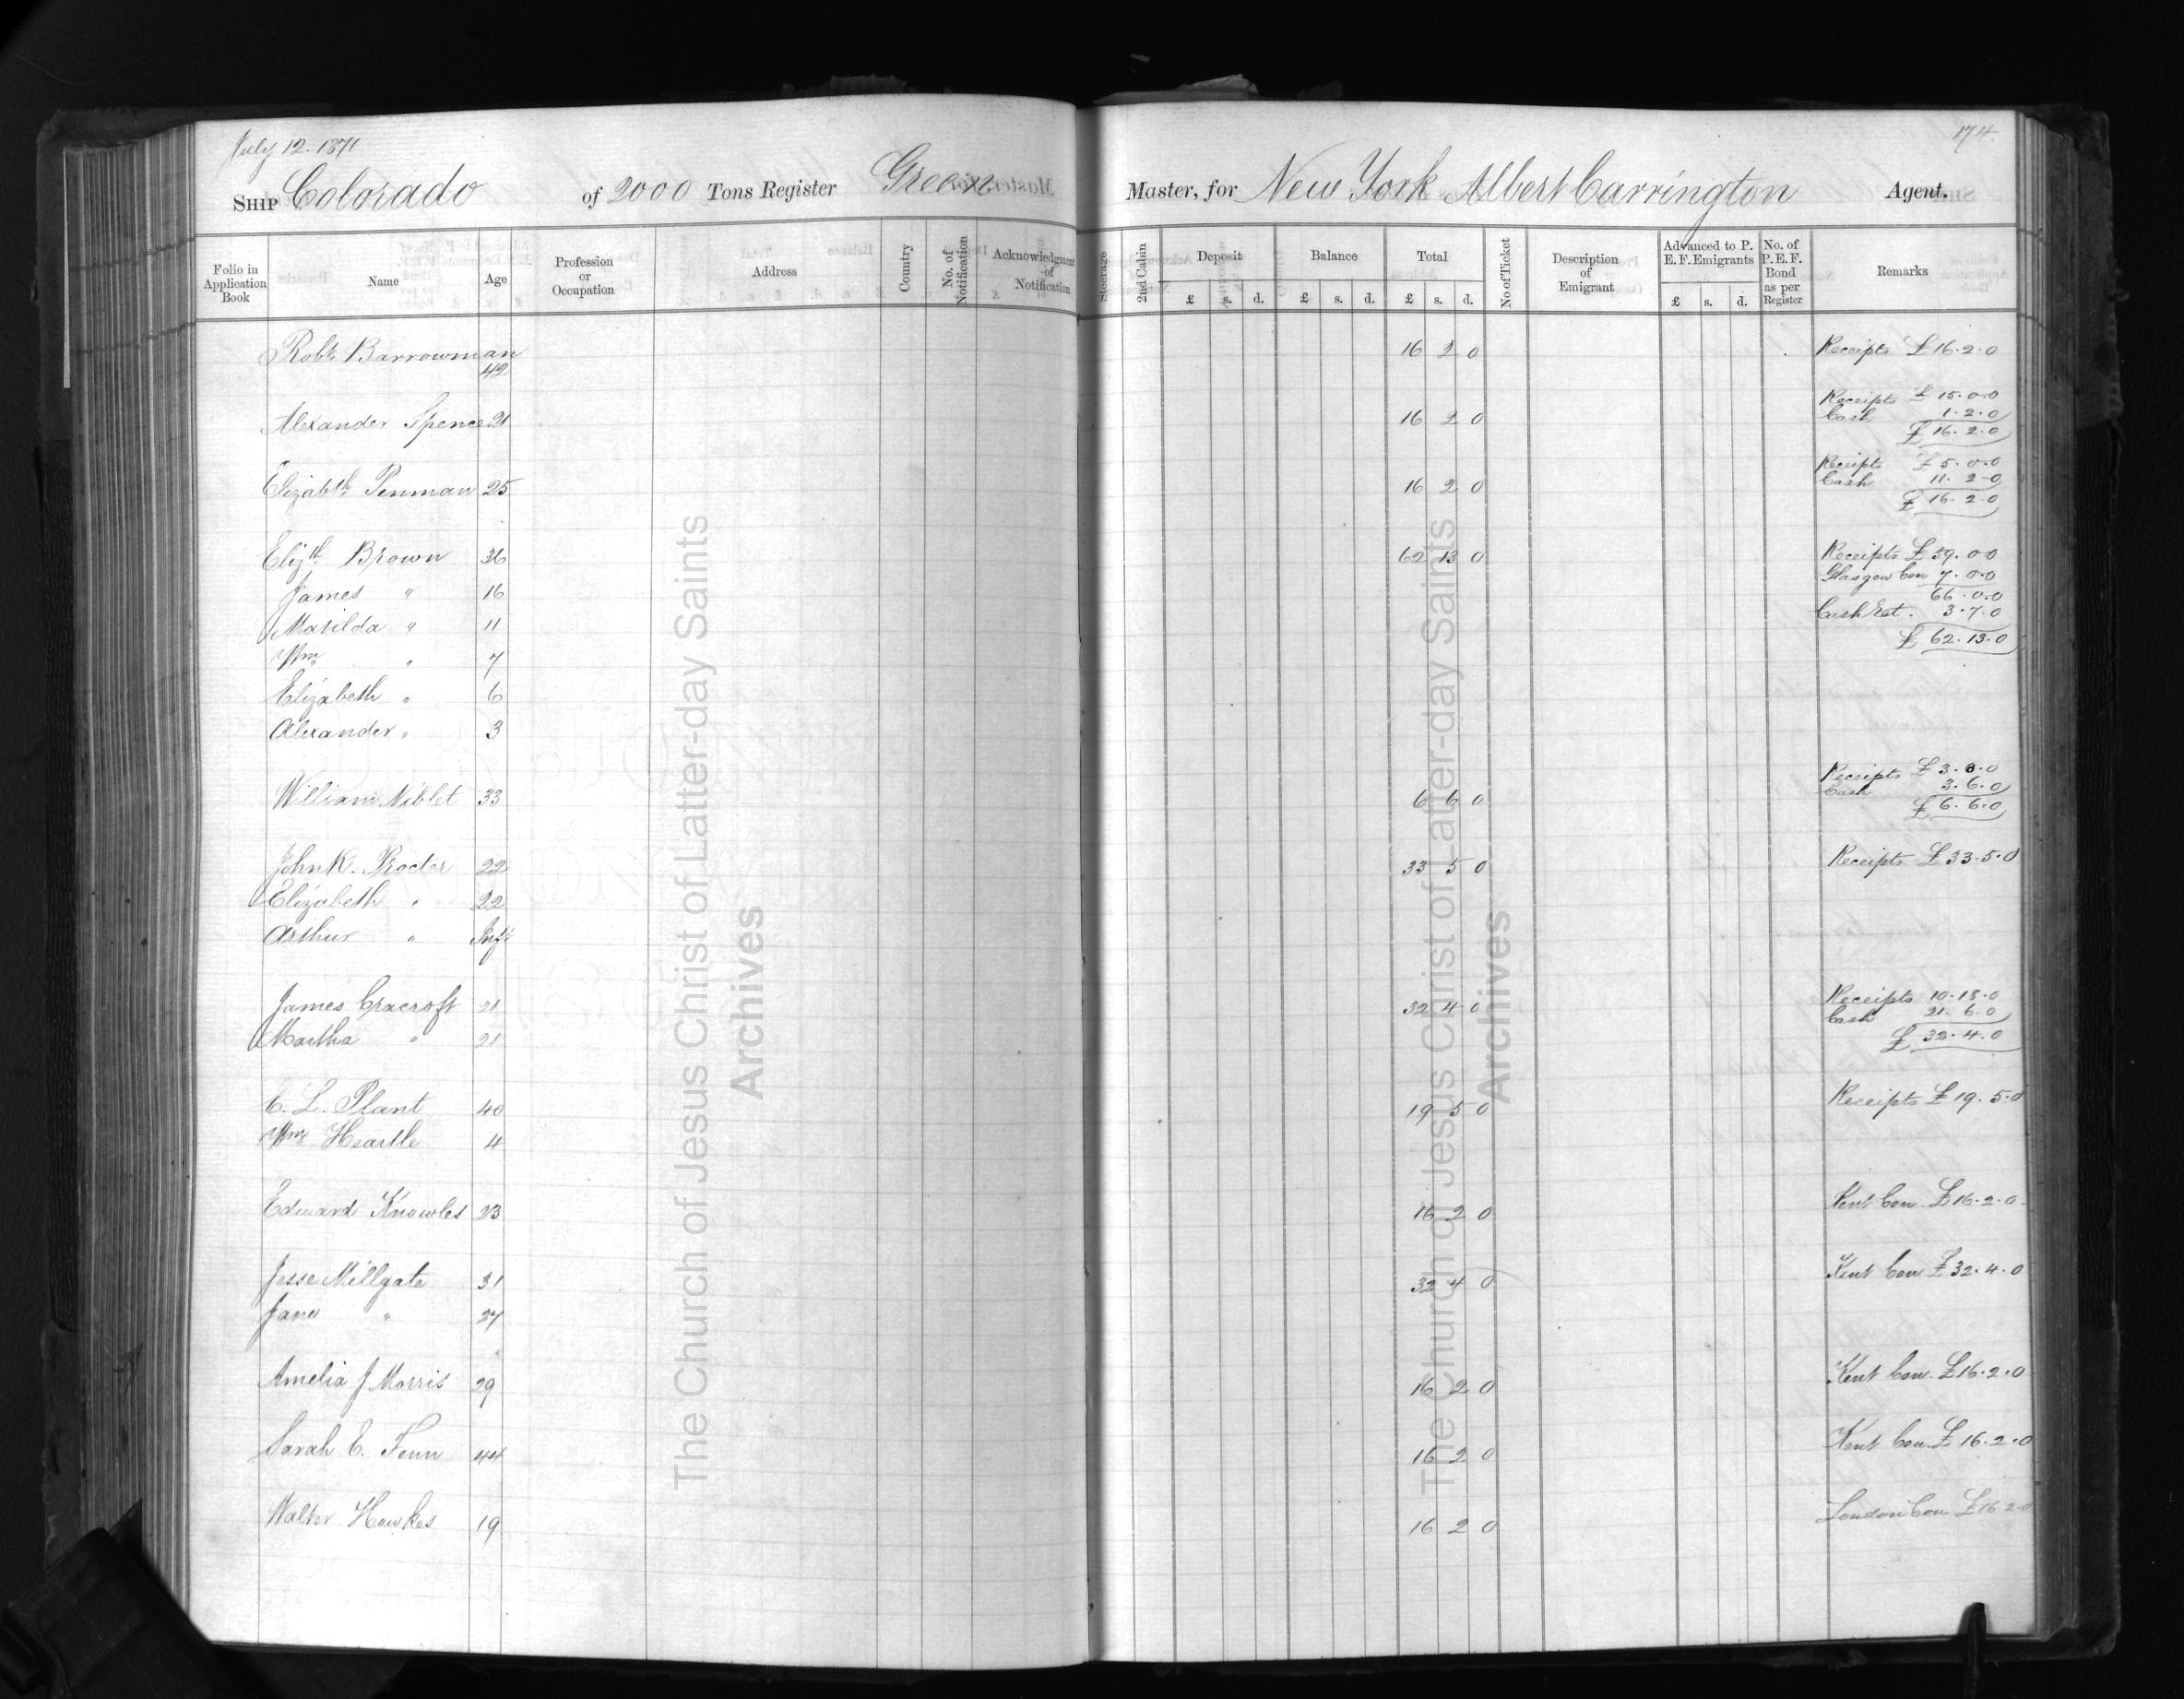 July 12. 1871
174
Ship Colorado of 2000 Tons Register Green Master, for New York Albert Carrington Agent.
Folio in Application Book
Name
Age
Profession or Occupation
Address
Country
No. of Notification
Acknowledgment of Notification
Steerage
2nd Cabin
Deposit £ s. d.
Balance £ s. d.
Total £ s. d.
No of Ticket
Description of Emigrant
Advanced to P. E. F. Emigrants £ s. d.
No. of P. E. F. Bond as per Register
Remarks
Robt. Barrowman 42 16 2 0 Receipts £16.2.0
Receipts £ 15.0.0
Alexander Spence 21 16 2 0 Cash 1.2.0
£ 16.2.0
Receipts £5.0.0
Elizabth. Penman 25 16 2 0 Cash 11.2.0
£ 16.2.0
Elizth. Brown 36 62 13 0 Receipts £ 59.0.0
Glasgow Con 7.0.0
James " 16 66.0.0
Matilda " 11 Cash Ret. 3.7.0
£ 62.13.0
Wm " 7
Elizabeth " 6
Alexander " 3
Receipts £3.0.0
William Niblet 33 6 6 0 Cash 3.6.0
£ 6.6.0
John K. Procter 22 33 5 0 Receipts £33.5.0
Elizabeth " 22
Arthur " Inft
James Cracroft 21 32 4 0 Receipts 10.18.0
Cash 21.6.0
Martha " 21 £ 32.4.0
E. L. Plant 40 19 5 0 Receipts £ 19.5.0
Wm Heartle 4
Edward Knowles 23 16 2 0 Kent Con. £16.2.0.
Jesse Millgate 31 32 4 0 Kent Con £32.4.0
Jane " 27
Amelia J Morris 29 16 2 0 Kent Con. £16.2.0
Sarah E. Fenn 44 16 2 0 Kent Con. £ 16.2.0
Walter Hawkes 19 16 2 0 London Con £16.2.0
The Church of Jesus Christ of Latter-day Saints
Archives
The Church of Jesus Christ of Latter-day Saints
Archives